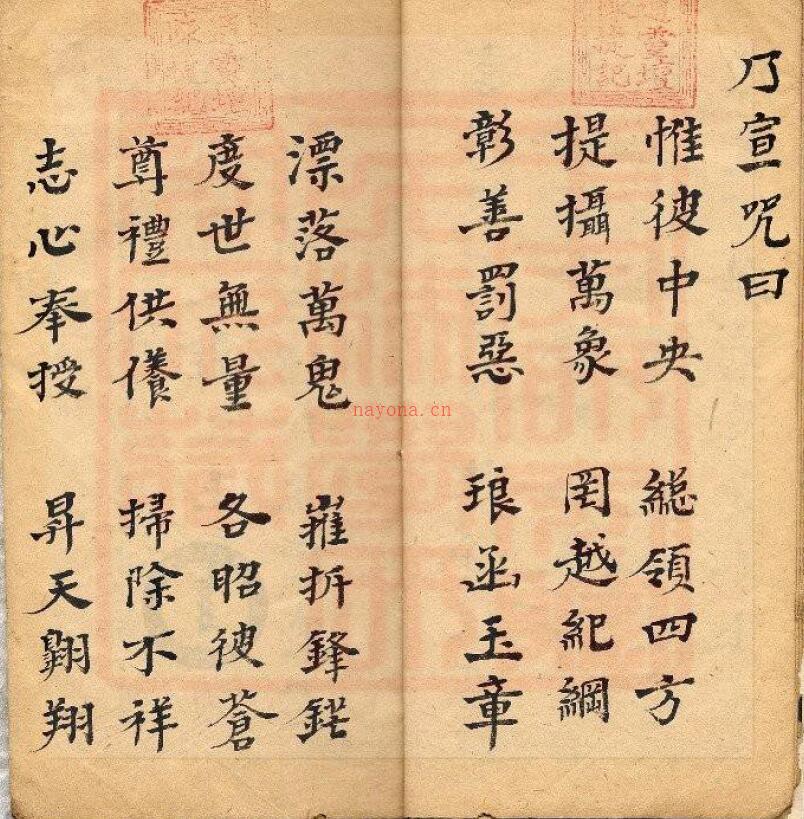 乃宣咒曰
惟彼中央 緫領四方
提攝萬象 罔越紀綱
彰善罰惡 琅函玉章
漂落萬鬼 摧折鋒鋩
度世無量 各昭彼蒼
尊禮供養 掃除不祥
志心奉授 昇天翺翔
nayona.cn